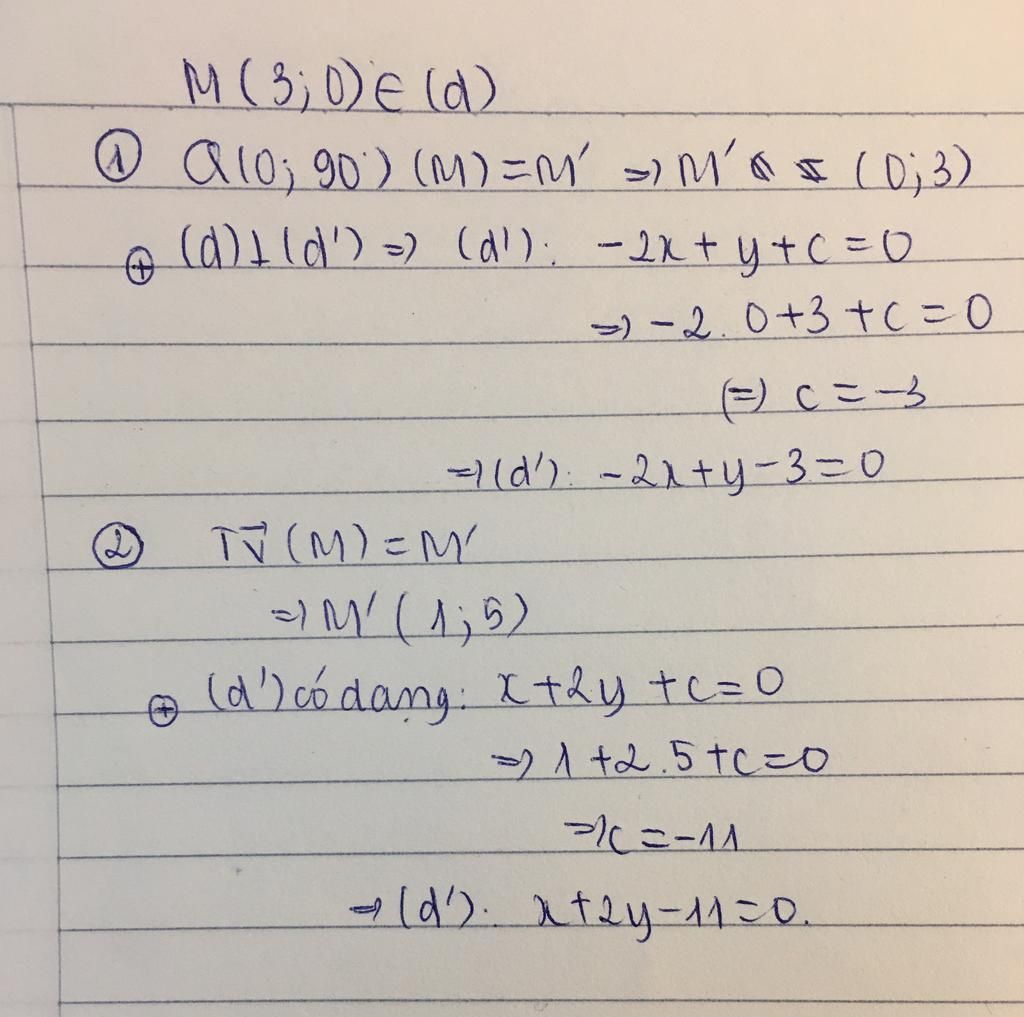 M(3;0)∈(d)
① Q(0;90°)(M)=M' => M' (0;3)
⊕ (d)⊥(d') => (d'): -2x+y+c=0
=> -2.0+3+c=0
(=) c=-3
=> (d'): -2x+y-3=0
② Tv⃗(M)=M'
=> M'(1;5)
⊕ (d') có dạng: x+2y+c=0
=> 1+2.5+c=0
=> c=-11
=> (d'): x+2y-11=0.